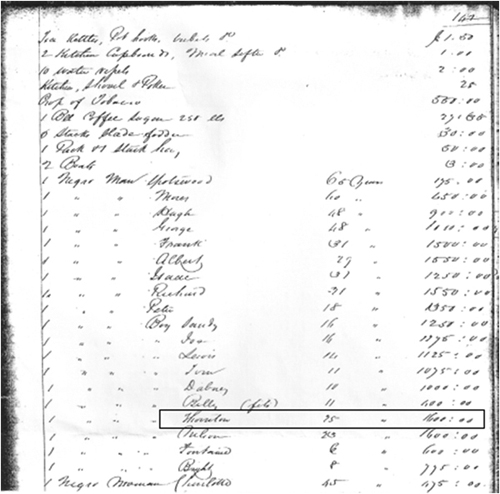 142
Tea Kettles, Pot hooks, &c $1.50
2 Kitchen Cupboards, Meal Sifter & 1.00
10 water vessels 2:00
Kitchen, Shovel & Poker 25
Crop of Tobacco 550:00
1 Bbl Coffee Sugar 250 lbs
6 Stacks blade fodder 30:00
1 Stack Hay 50:00
2 Boats
1 Negro Man 65 Years 175.00
1 " " Moses 40 " 650:00
1 " " Hugh 48 " 900:00
1 " " George 48 "
1 " " Frank 31 " 1500:00
1 " " Albert 29 " 1550:00
1 " " Isaac 31 " 1250:00
1 " " Richard 31 " 1550:00
1 " " Peter 18 " 1350:00
1 " Boy Sandy 16 " 1250:00
1 " " 16 " 1275:00
1 " " Lewis 14 " 1125:00
1 " " Tom 11 " 1075:00
1 " " Dabney 10 " 1000:00
1 " " Billy 11 " 400:00
1 " " Thornton 25 " 1600:00
1 " " Nelson 23 " 1600:00
1 " " Fontaine 6 " 600:00
1 " " 8 " 775:00
1 Negro Woman Charlotte 45 " 475:00